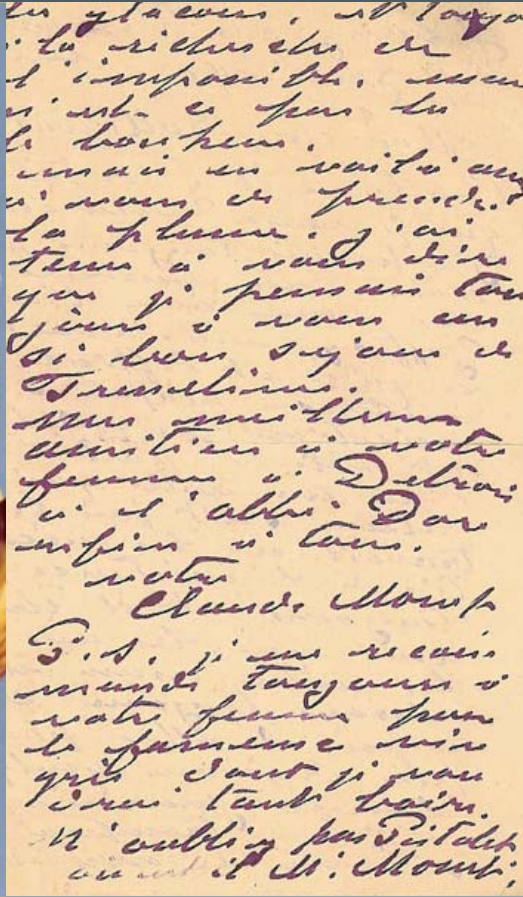 les glaçons, et toujo
à la recherche de
l'impossible. mais
n'est-ce pas là
le bonheur.
mais en voilà
à vous de prendre
la plume. j'ai
tenu à vous dire
que je pensais tou
jours à vous au
si bon séjour de
Fresselines.
mes meilleures
amitiés à votre
femme à Detroi
à l'abbé. Dar
enfin à tous.
votre
Claude Monet
P.S. je me recom
mande toujours à
votre femme pour
le fameux vin
gris dont je vou
drai tant boire.
n'oubliez pas Pistolet
il M. Monet.